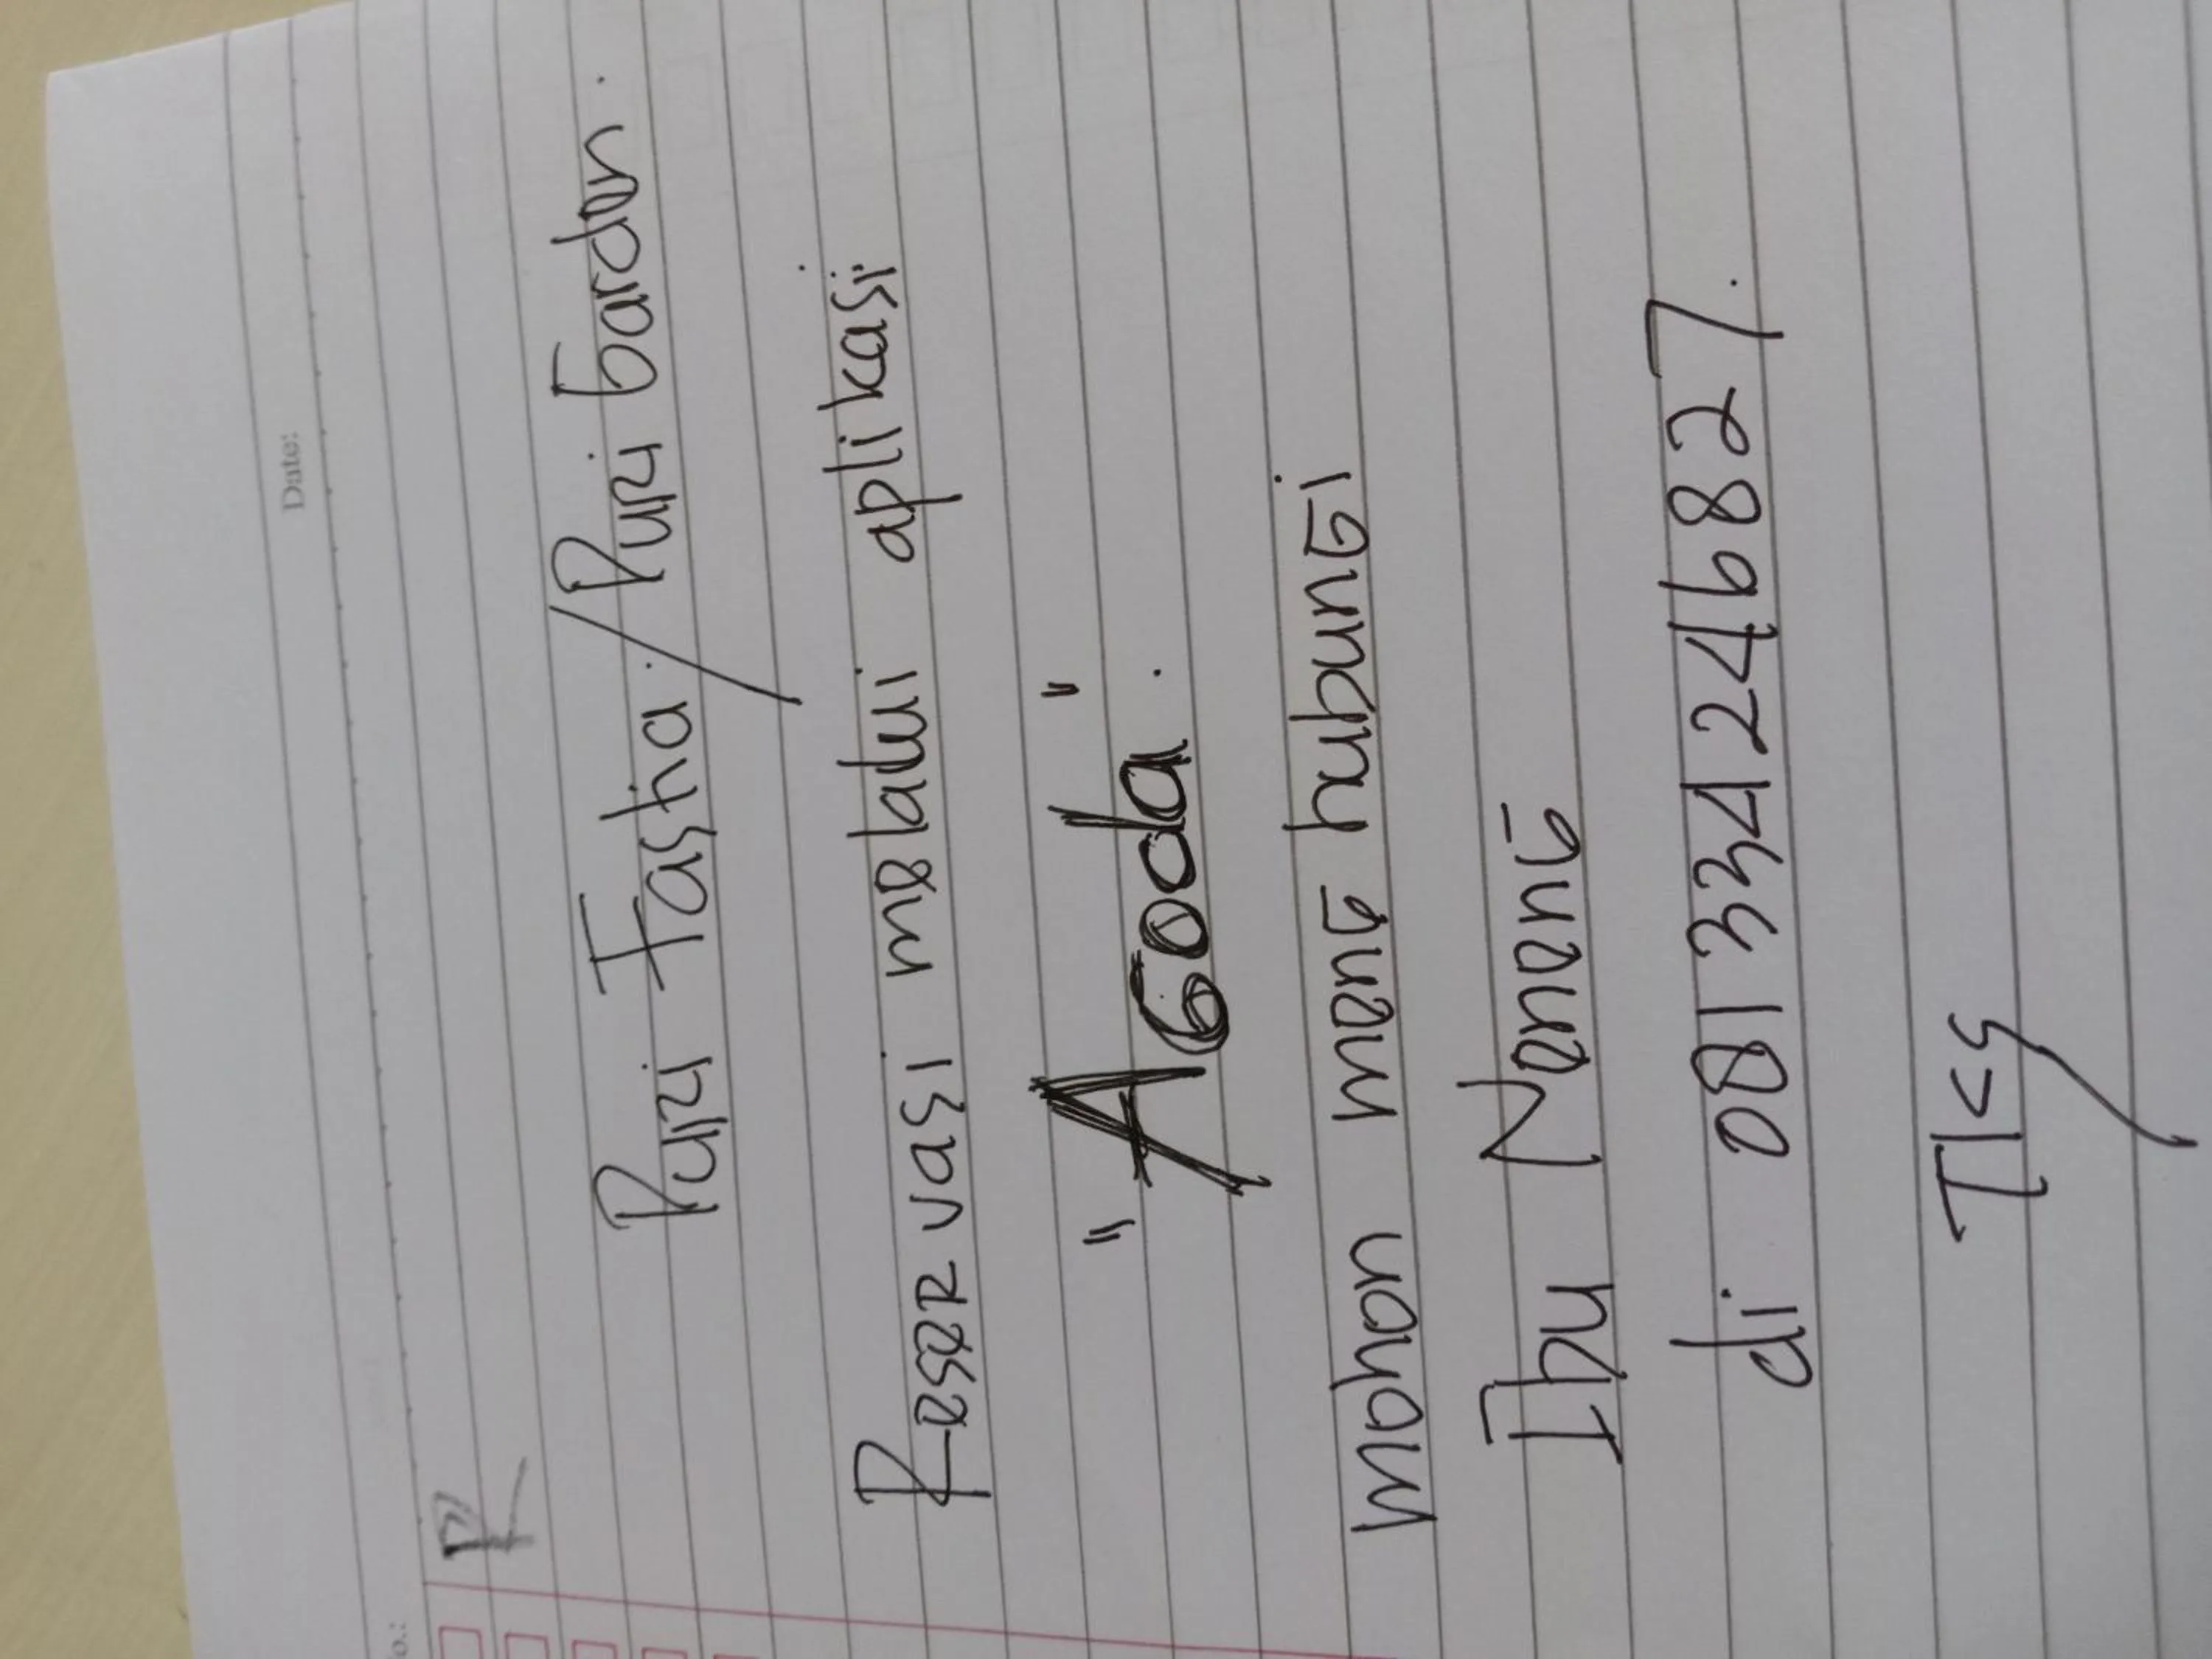 Date:
No.:
R
Puri Fasha./Puri Garden.
Reservasi melalui aplikasi
"Agoda".
Mohon menghubungi
Ibu Nonong
di 081334246827.
Tks